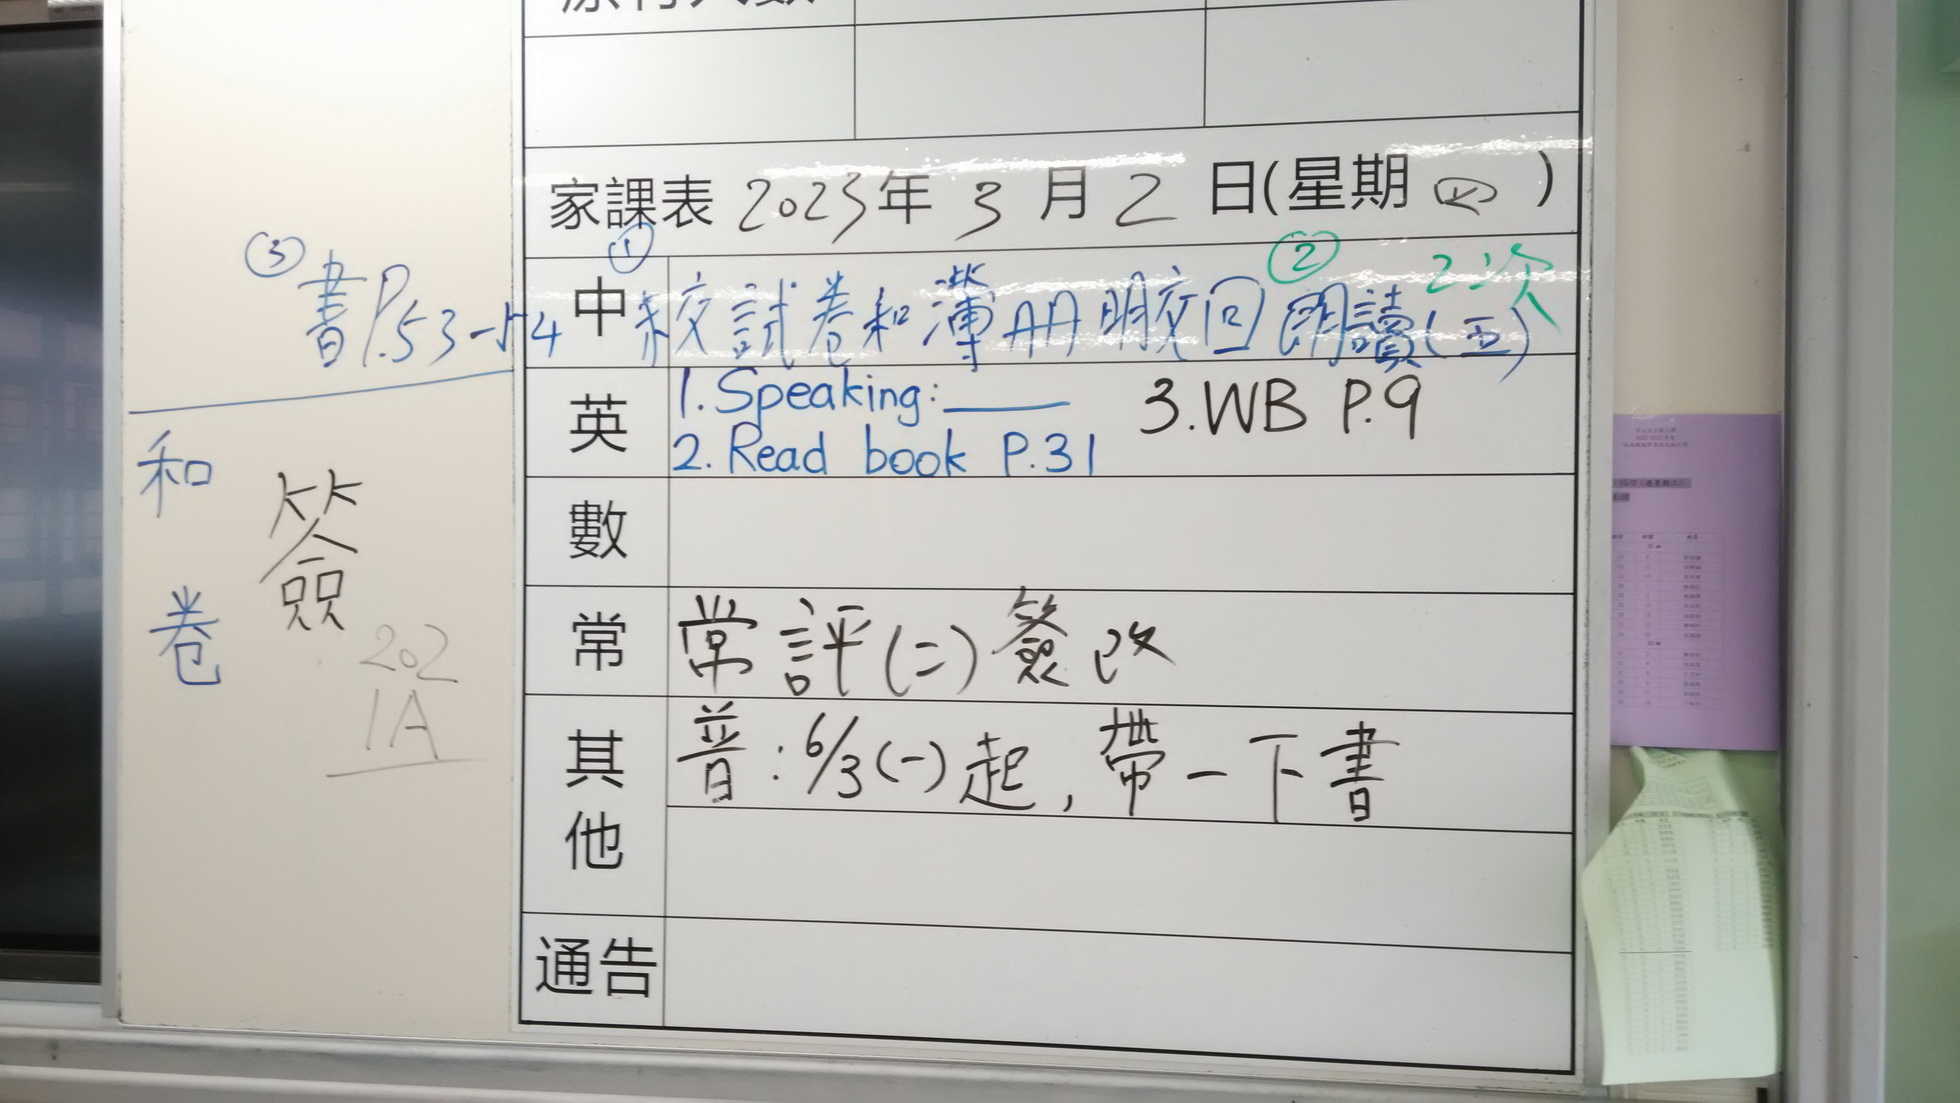 家課表 2023年 3 月 2 日(星期 四 )
③ 書P.53-54
中 ① 校試卷和簿冊明交回 ② 朗讀(五) 2次
英 1.Speaking:____ 3.WB P.9
2. Read book P.31
和
卷
簽
202
1A
數
常 常評(二)簽改
其他 普:6/3(一)起,帶一下書
通告